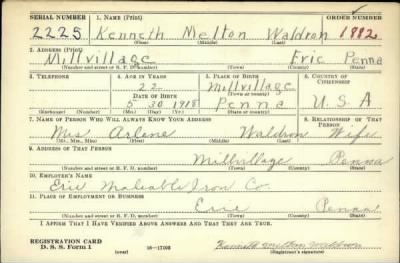 SERIAL NUMBER 1. NAME (Print) ORDER NUMBER
2225 Kenneth Melton Waldron 1882
(First) (Middle) (Last)
2. ADDRESS (Print)
Millvillage Erie Penna
(Number and street or R. F. D. number) (Town) (County) (State)
3. TELEPHONE 4. AGE IN YEARS 5. PLACE OF BIRTH 6. COUNTRY OF CITIZENSHIP
22 Millvillage
DATE OF BIRTH (Town or county)
5 30 1918 Penna U.S.A
(Exchange) (Number) (Mo.) (Day) (Yr.) (State or country)
7. NAME OF PERSON WHO WILL ALWAYS KNOW YOUR ADDRESS 8. RELATIONSHIP OF THAT PERSON
Mrs Arlene Waldron Wife
(Mr., Mrs., Miss) (First) (Middle) (Last)
9. ADDRESS OF THAT PERSON
Millvillage Penna
(Number and street or R. F. D. number) (Town) (County) (State)
10. EMPLOYER'S NAME
Erie Maleable Iron Co.
11. PLACE OF EMPLOYMENT OR BUSINESS
Erie Penna
(Number and street or R. F. D. number) (Town) (County) (State)
I AFFIRM THAT I HAVE VERIFIED ABOVE ANSWERS AND THAT THEY ARE TRUE.
REGISTRATION CARD
D. S. S. Form 1 (over) 16—17105 Kenneth Melton Waldron
(Registrant's signature)